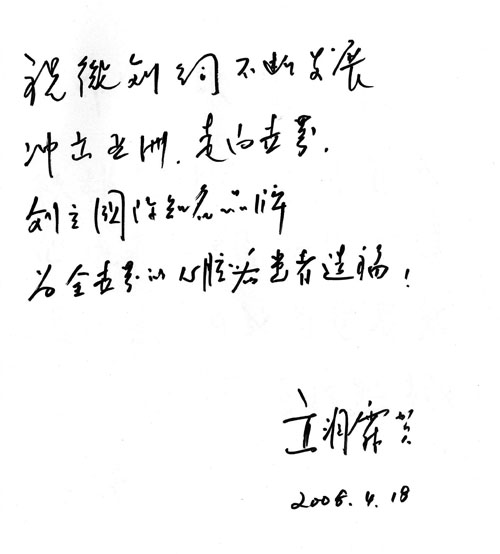 祝微创不断发展
冲出亚洲，走向世界，
创立国际知名品牌
为全世界的心脏病患者造福！
高润霖贺
2008.4.18